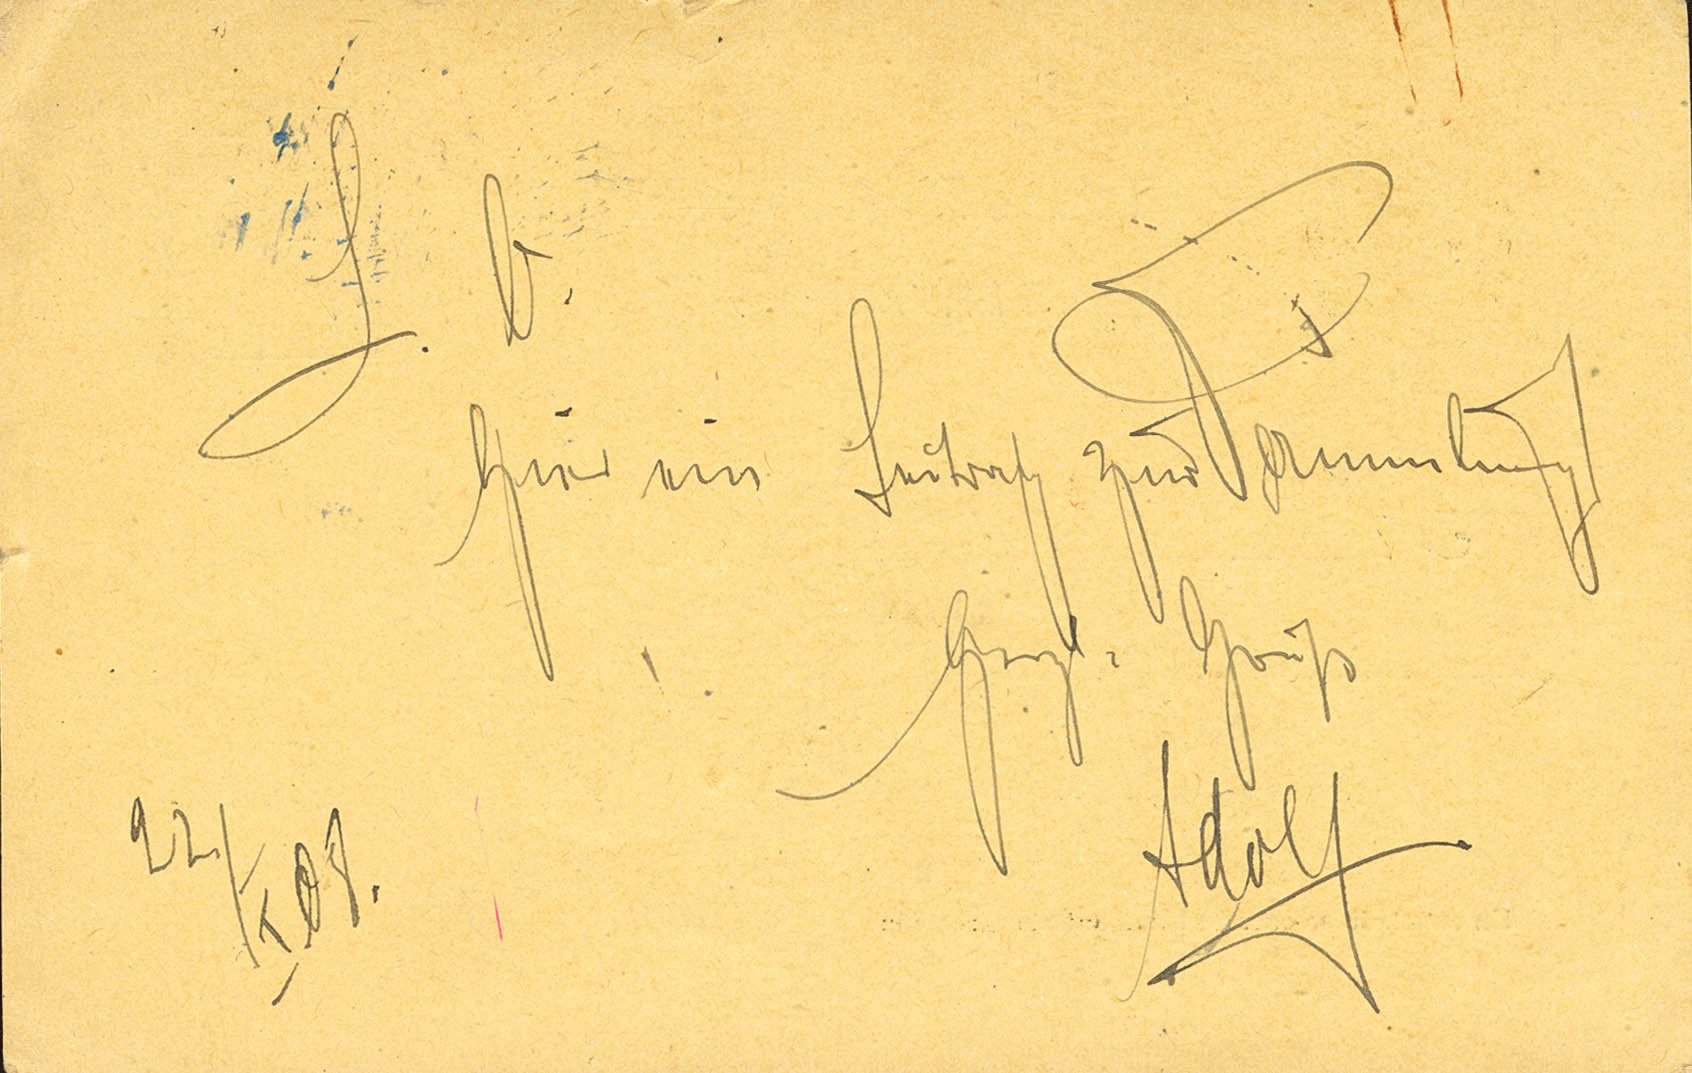 L. B.
Hier ein Beitrag zur Sammlung
Herzl. Gruß
Adolf
22/I 08.